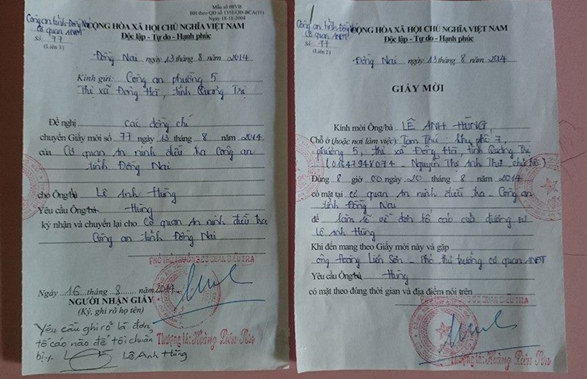 Công an tỉnh Đồng Nai
Cơ quan ANĐT
Số 77
(Liên 2)
Mẫu số
CỘNG HÒA XÃ HỘI CHỦ NGHĨA VIỆT NAM
Độc lập - Tự do - Hạnh phúc
Đồng Nai ngày 13 tháng 8 năm 2014
Kính gửi: Công an phường 5
Thị xã Đông Hà, tỉnh Quảng Trị
Đề nghị các đồng chí
chuyển Giấy mời số 77 ngày 13 tháng 8 năm 2014
của Cơ quan An ninh điều tra Công an
tỉnh Đồng Nai
cho Ông/bà Lê Anh Hùng
Yêu cầu Ông/bà Hùng
ký nhận và chuyển lại cho Cơ quan An ninh điều tra
Công an tỉnh Đồng Nai
Ngày 16 tháng 8 năm 2014
NGƯỜI NHẬN GIẤY
(Ký, ghi rõ họ tên)
Yêu cầu ghi rõ là đơn
tố cáo nào để tôi chuẩn
bị.
Lê Anh Hùng
Thượng tá:
Công an tỉnh Đồng Nai
Cơ quan ANĐT
Số 77
CỘNG HÒA XÃ HỘI CHỦ NGHĨA VIỆT NAM
Độc lập - Tự do - Hạnh phúc
Đồng Nai, ngày 13 tháng 8 năm 2014
GIẤY MỜI
Kính mời Ông/bà LÊ ANH HÙNG
Chỗ ở (hoặc nơi làm việc) Tạm trú khu phố 7,
phường 5, thị xã Đông Hà, tỉnh Quảng Trị
Đúng 8 giờ 00 ngày 20 tháng 8 năm 2014
có mặt tại cơ quan an ninh điều tra - Công an
tỉnh Đồng Nai
để làm rõ về đơn tố cáo của đương sự
Lê Anh Hùng
Khi đến mang theo Giấy mời này và gặp
ông Hoàng Liên Sơn - Phó thủ trưởng cơ quan ANĐT
Yêu cầu Ông/bà Hùng
có mặt theo đúng thời gian và địa điểm nói trên
Thượng tá: